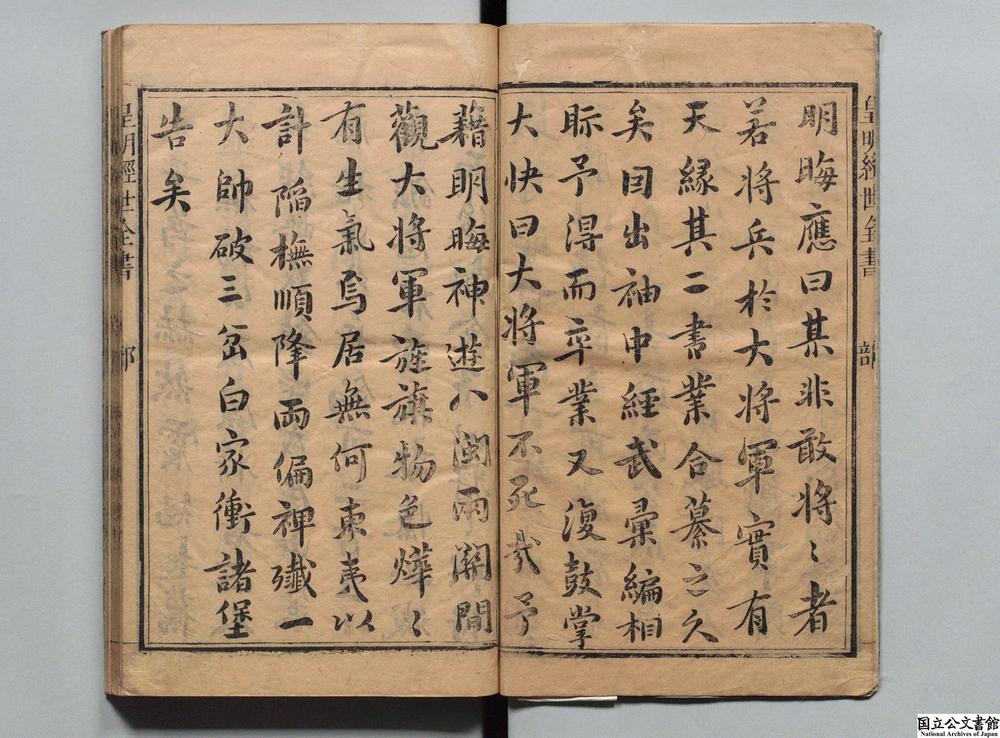 明晦應曰某非敢將〻者
若將兵於大將軍實有
天緣其二書業合纂之久
矣因出袖中經武彙編相
眎予得而卒業又復鼓掌
大快曰大將軍不死哉予
藉明晦神遊八閩兩關間
觀大將軍旌旗物色燁〻
有生氣烏居無何東夷以
計陷撫順降兩偏裨殲一
大帥破三岔白家衝諸堡
告矣
皇明經世全書
部
皇明經世全書
部
国立公文書館
National Archives of Japan